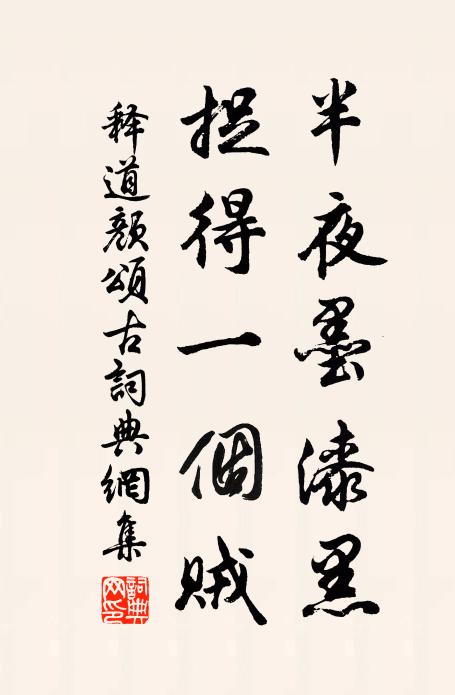 半夜墨漆黑
捉得一個賊
释道颜頌古詞典網集
詞典网印